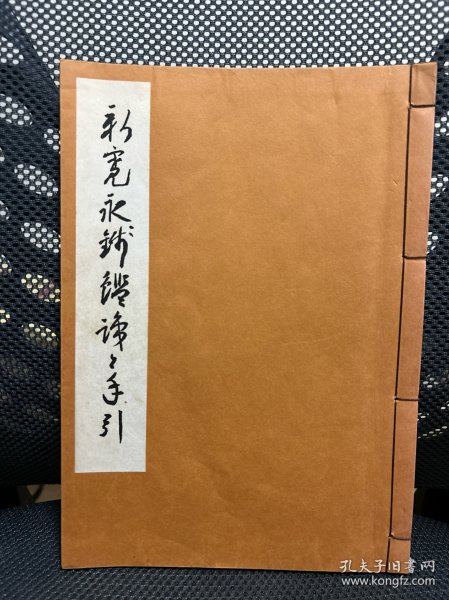 新寛永銭鑑識と手引
孔夫子旧书网
www.kongfz.com